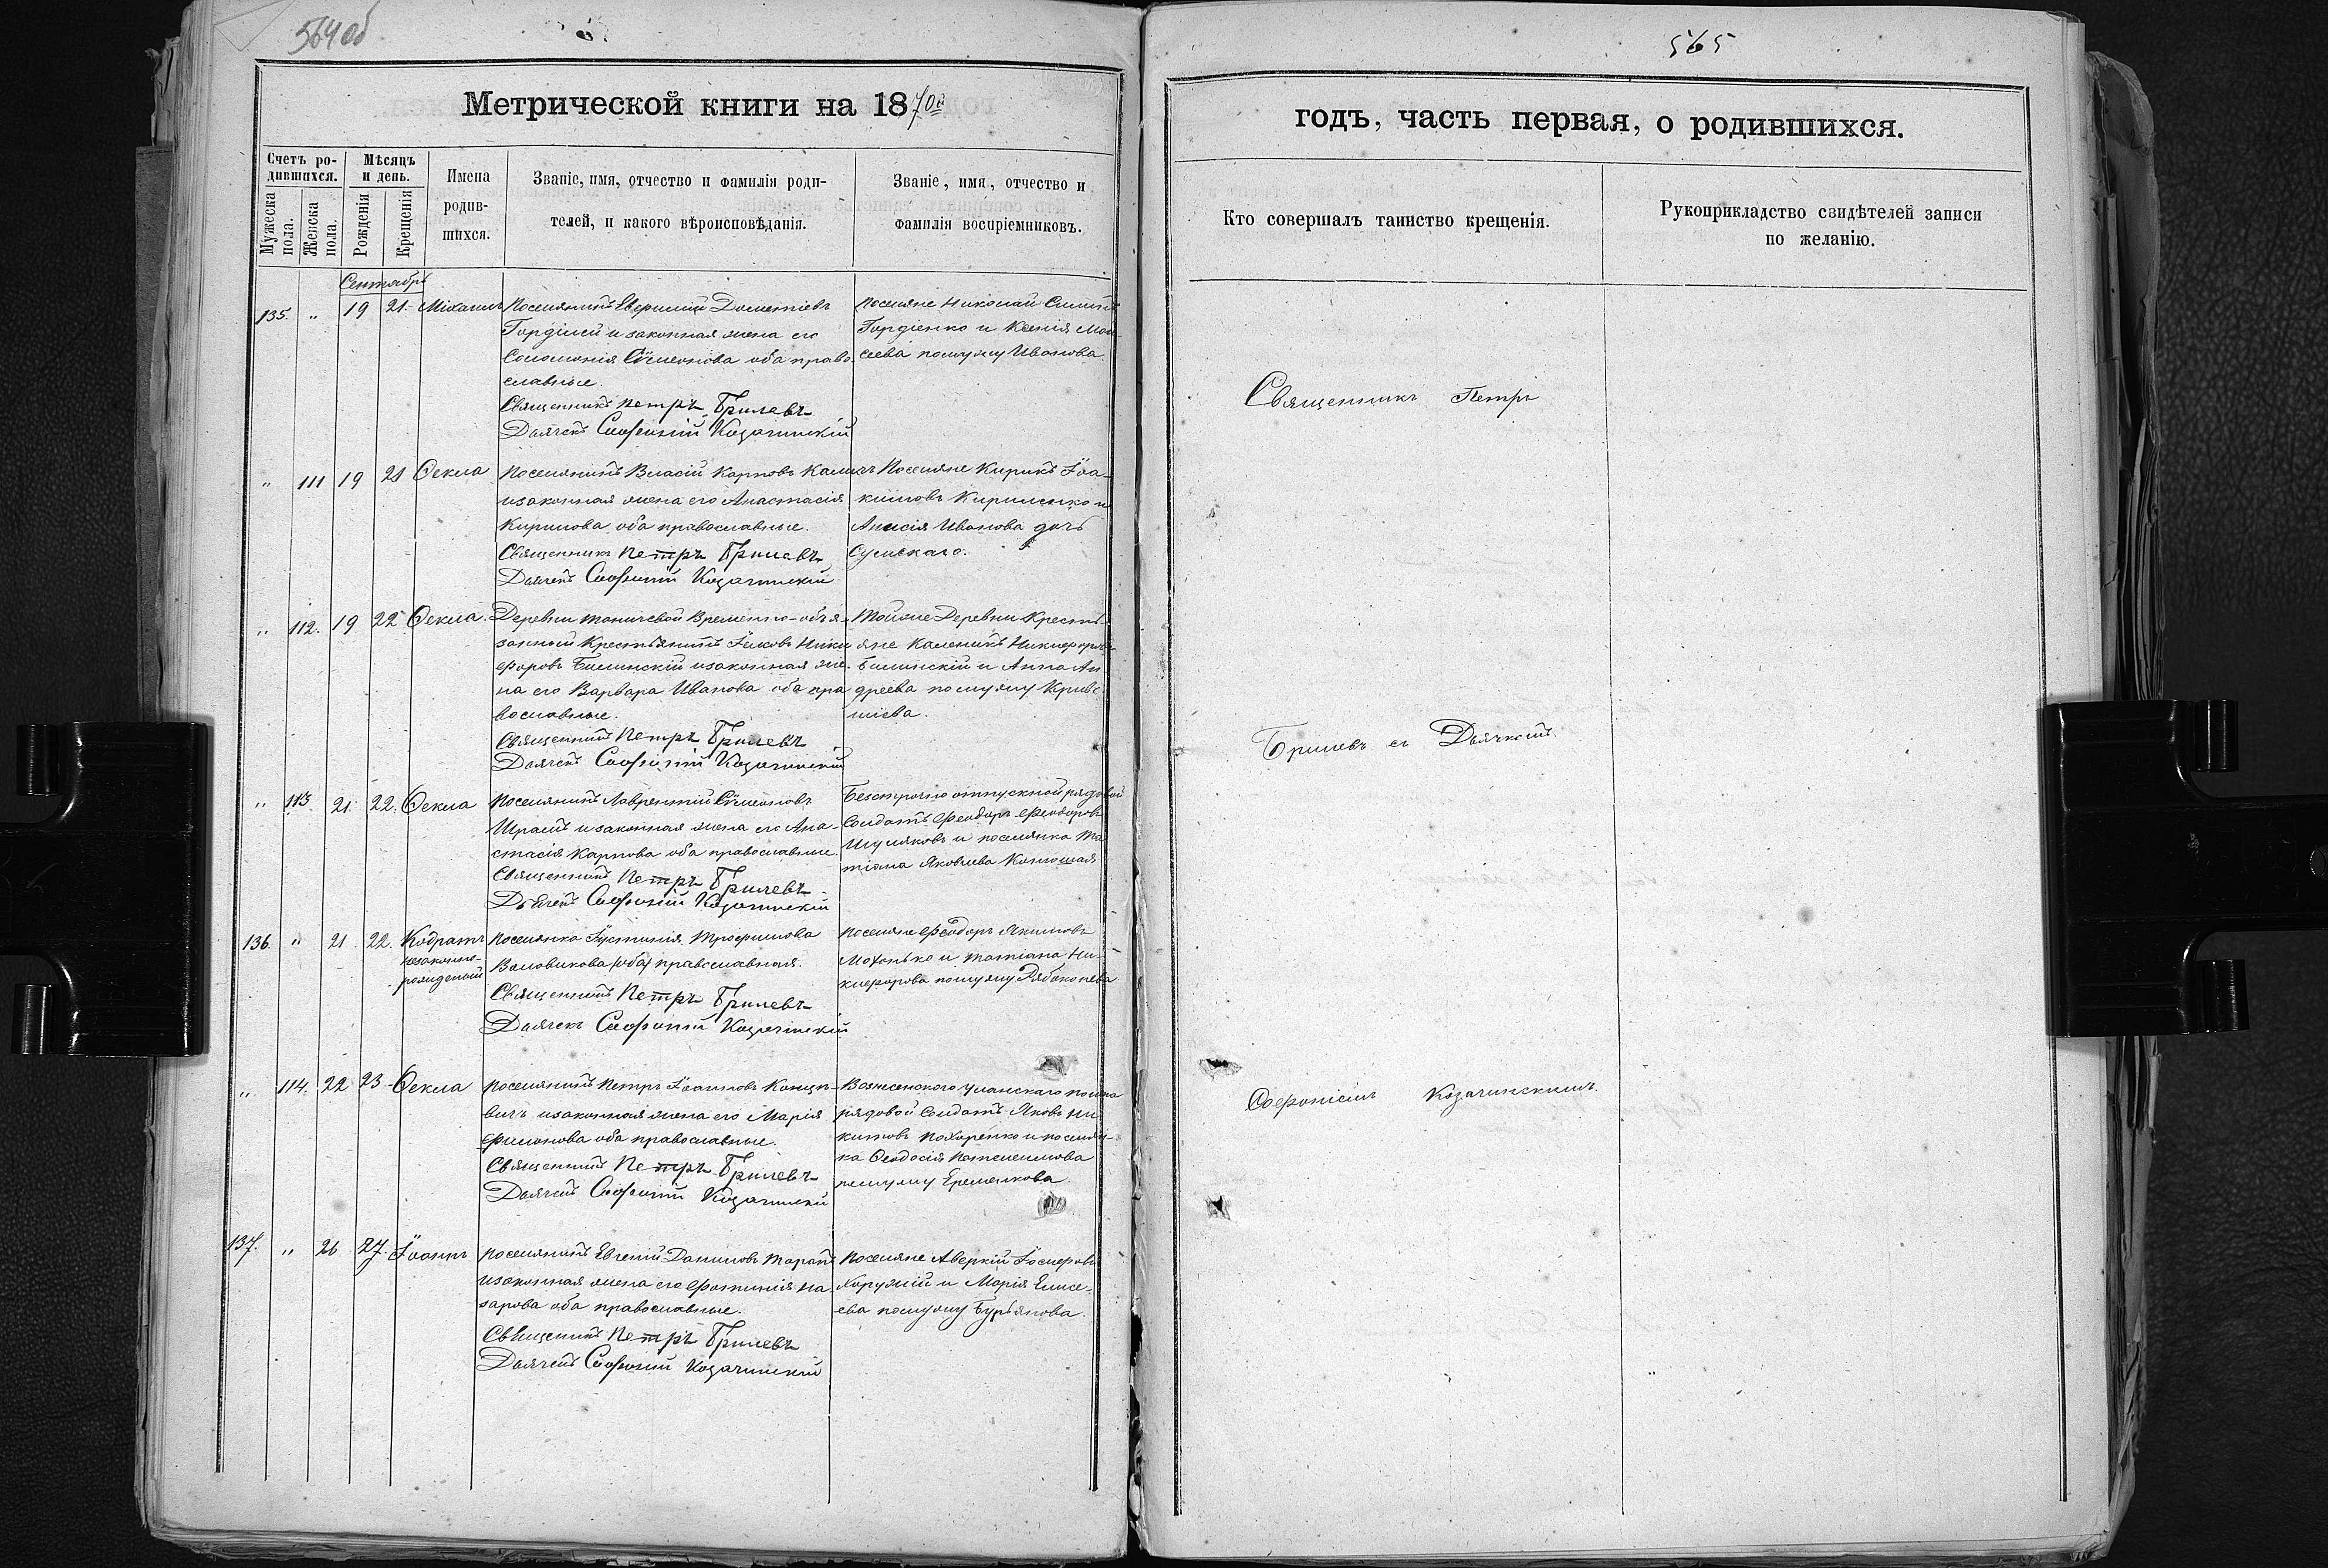 564 об
565
Метрической книги на 1870й
годъ, часть первая, о родившихся.
Счетъ ро-
дившихся.
Мужеска
пола.
Женска
пола.
Мѣсяцъ
и день.
Рожденія
Крещенія
Имена
родив-
шихся.
Званіе, имя, отчество и фамилія роди-
телей, и какого вѣроисповѣданія.
Званіе, имя, отчество и
фамилія воспріемниковъ.
Кто совершалъ таинство крещенія.
Рукоприкладство свидѣтелей записи
по желанію.
Сентябрь
135. " 19 21 Михаилъ
Поселянинъ Дометіевъ
Гордіенко и законная жена его
Соломонія Сѵмеонова оба право
славные.
Священникъ Петръ Брилевъ
Дьячекъ Софроній Козачинскій
Поселяне Николай
Гордіенко и Ксенія Мои
сеева по мужу Иванова.
" 111 19 21 Ѳекла
Поселянинъ Власій Карповъ
и законная жена его Анастасія
Кирилова оба православные.
Священникъ Петръ Брилевъ
Дьячекъ Софроній Козачинскій
Поселяне Кирикъ Іоа-
кимовъ Кириленко и
Анисія Иванова дочь
Сумскаго.
" 112. 19 22 Ѳекла.
Деревни Временно-обя-
занный Крестьянинъ Іаковъ Ники
форовъ Билинскій и законная же-
на его Варвара Иванова оба пра
вославные.
Священникъ Петръ Брилевъ
Дьячекъ Софроній Козачинскій
Тойже Деревни Кресть-
яне Каленикъ Никифоровъ
Билинскій и Анна Ан
дреева по мужу
" 113 21 22. Ѳекла
Поселянинъ Лаврентій Сѵмеоновъ
и законная жена его Ана-
стасія Карпова оба православные.
Священникъ Петръ Брилевъ
Дьячекъ Софроній Козачинскій
Безсрочно отпускной рядовой
Солдатъ Феодоръ Феодоровъ
Шуляковъ и поселянка Та
тіана Яковлева
136. " 21 22. Кодратъ
незаконно-
рожденый
Поселянка Іустинія Трофимова
Воловикова (оба) православная.
Священникъ Петръ Брилевъ
Дьячекъ Софроній Козачинскій
Поселяне Феодоръ Якимовъ
и Татіана Ни-
кифорова по мужу Рябоконева
" 114. 22 23 Ѳекла
Поселянинъ Петръ Іоанновъ
вичъ и законная жена его Марія
Филонова оба православные.
Священникъ Петръ Брилевъ
Дьячекъ Софроній Козачинскій
Вознесенского уланскаго полка
рядовой Солдатъ Яковъ Ни-
китовъ Похоренко и поселян-
ка Ѳеодосія Пантелеимова
по мужу Еременкова.
137. " 26 27. Іоаннъ
Поселянинъ Евгеній Даниловъ Таранъ
и законная жена его Фотинія На
зарова оба православные.
Священникъ Петръ Брилевъ
Дьячекъ Софроній Козачинскій
Поселяне Аверкій Іосифовъ
Хоружій и Марія Елисе-
ева по мужу Бурьянова.
Священникъ Петръ
Брилевъ съ Дьячкомъ
Софроніемъ Козачинскимъ.